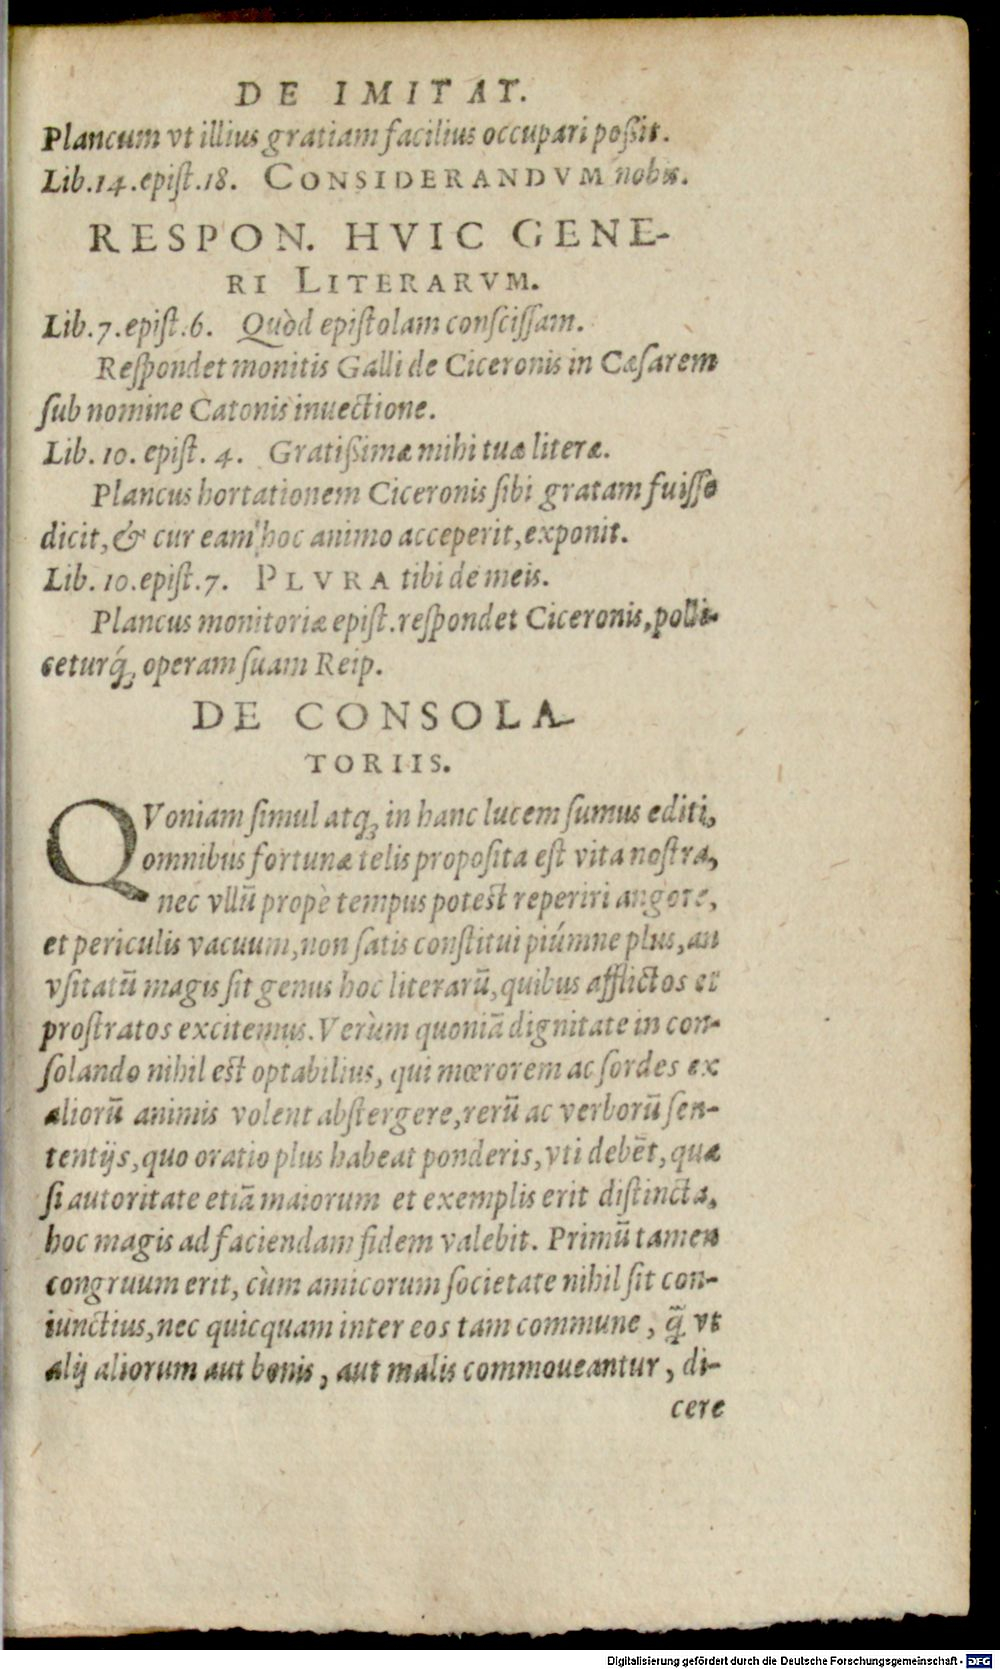 DE IMITAT.
Plancum vt illius gratiam facilius occupari poßit.
Lib.14.epiſt.18. CONSIDERANDVM nobis.
RESPON. HVIC GENE-
RI LITERARVM.
Lib.7.epiſt.6. Quòd epiſtolam conſciſſam.
Reſpondet monitis Galli de Ciceronis in Cæſarem
ſub nomine Catonis inuectione.
Lib. 10. epiſt. 4. Gratißimæ mihi tuæ literæ.
Plancus hortationem Ciceronis ſibi gratam fuiſſe
dicit, & cur eam hoc animo acceperit, exponit.
Lib. 10.epiſt.7. PLVRA tibi de meis.
Plancus monitoriæ epiſt.reſpondet Ciceronis, polli-
ceturq́; operam ſuam Reip.
DE CONSOLA-
TORIIS.
QVoniam ſimul atq; in hanc lucem ſumus editi,
omnibus fortunæ telis propoſita eſt vita noſtra,
nec vllū propè tempus poteſt reperiri angore,
et periculis vacuum, non ſatis conſtitui piúmne plus, an
vſitatū magis ſit genus hoc literarū, quibus afflictos et
proſtratos excitemus. Verùm quoniā dignitate in con-
ſolando nihil eſt optabilius, qui mœrorem ac ſordes ex
aliorū animis volent abſtergere, rerū ac verborū ſen-
tentijs, quo oratio plus habeat ponderis, vti debēt, quæ
ſi autoritate etiā maiorum et exemplis erit diſtincta,
hoc magis ad faciendam fidem valebit. Primū tamen
congruum erit, cùm amicorum ſocietate nihil ſit con-
iunctius, nec quicquam inter eos tam commune, q̃ vt
alij aliorum aut bonis, aut malis commoueantur, di-
cere
Digitalisierung gefördert durch die Deutsche Forschungsgemeinschaft - DFG